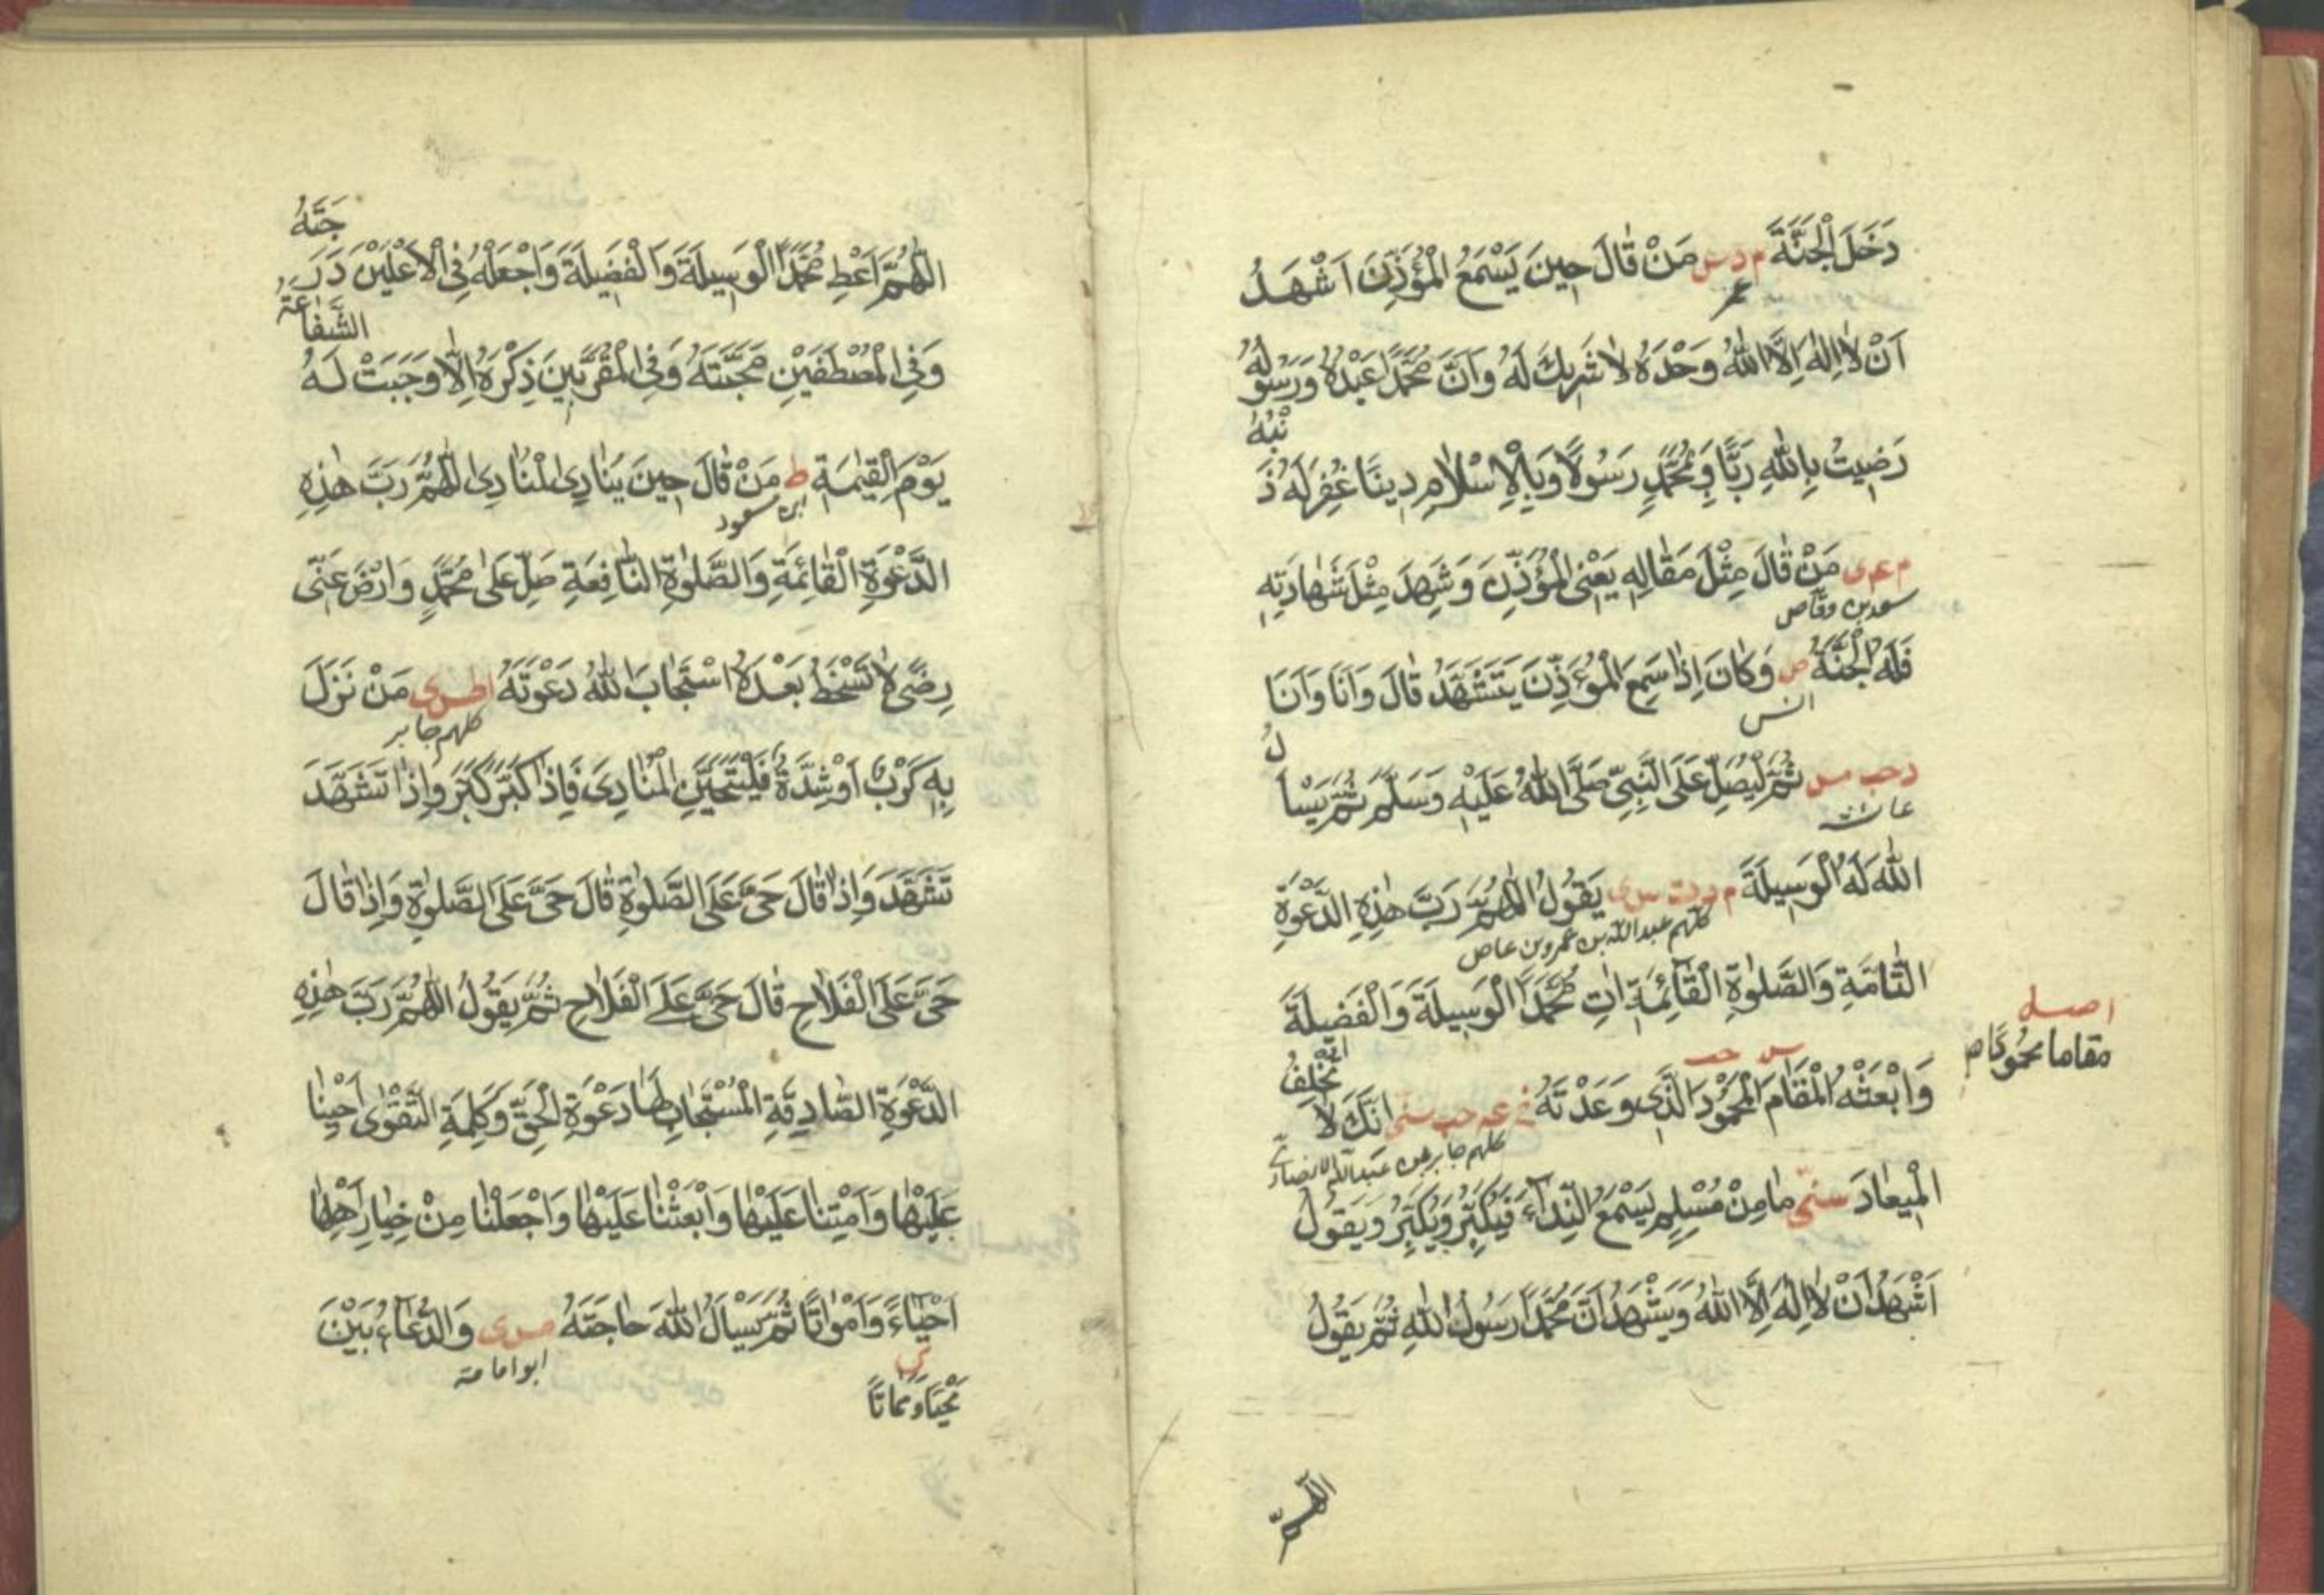 دَخَلَ الْجَنَّةَ م د س مَنْ قَالَ حِينَ يَسْمَعُ الْمُؤَذِّنَ اَشْهَدُ
عمر
اَنْ لَا اِلٰهَ اِلَّا اللّٰهُ وَحْدَهُ لَا شَرِيكَ لَهُ وَاَنَّ مُحَمَّدًا عَبْدُهُ وَرَسُولُهُ
رَضِيتُ بِاللّٰهِ رَبًّا وَبِمُحَمَّدٍ رَسُولًا وَبِالْاِسْلَامِ دِينًا غُفِرَ لَهُ ذَ
نْبُهُ
م عه ى مَنْ قَالَ مِثْلَ مَقَالِهِ يَعْنِى الْمُؤَذِّنَ وَشَهِدَ مِثْلَ شَهَادَتِهِ
سعد بن وقاص
فَلَهُ الْجَنَّةُ ص وَكَانَ اِذَا سَمِعَ الْمُؤَذِّنَ يَتَشَهَّدُ قَالَ وَاَنَا وَاَنَا
انس
د حب مس ثُمَّ لْيُصَلِّ عَلَى النَّبِىِّ صَلَّى اللّٰهُ عَلَيْهِ وَسَلَّمَ ثُمَّ يَسْاَ
لُ
عائشه
اللّٰهَ لَهُ الْوَسِيلَةَ م د ت س ى يَقُولُ اَللّٰهُمَّ رَبَّ هٰذِهِ الدَّعْوَةِ
كلهم عبد الله بن عمرو بن عاص
التَّامَّةِ وَالصَّلٰوةِ الْقَائِمَةِ اٰتِ مُحَمَّدًا الْوَسِيلَةَ وَالْفَضِيلَةَ
وَابْعَثْهُ الْمَقَامَ الْمَحْمُودَ الَّذِى وَعَدْتَهُ خ عه حب سنى اِنَّكَ لَا
تُخْلِفُ
س حب
اصله
مقاما محمودًا
كلهم جابر بن عبد الله الانصارى
الْمِيعَادَ سنى مَا مِنْ مُسْلِمٍ يَسْمَعُ النِّدَاءَ فَيُكَبِّرُ وَيُكَبِّرُ وَيَقُولُ
اَشْهَدُ اَنْ لَا اِلٰهَ اِلَّا اللّٰهُ وَيَشْهَدُ اَنَّ مُحَمَّدًا رَسُولُ اللّٰهِ ثُمَّ يَقُولُ
اللهم
اَللّٰهُمَّ اَعْطِ مُحَمَّدًا الْوَسِيلَةَ وَالْفَضِيلَةَ وَاجْعَلْهُ فِى الْاَعْلَيْنَ دَرَ
جَتَهُ
وَفِى الْمُصْطَفَيْنَ مَحَبَّتَهُ وَفِى الْمُقَرَّبِينَ ذِكْرَهُ اِلَّا وَجَبَتْ لَهُ
الشَّفَاعَةُ
يَوْمَ الْقِيٰمَةِ ط مَنْ قَالَ حِينَ يُنَادِى الْمُنَادِى اَللّٰهُمَّ رَبَّ هٰذِهِ
ابن مسعود
الدَّعْوَةِ الْقَائِمَةِ وَالصَّلٰوةِ النَّافِعَةِ صَلِّ عَلٰى مُحَمَّدٍ وَارْضَ عَنِّى
رِضًى لَا تَسْخَطُ بَعْدَهُ اسْتَجَابَ اللّٰهُ دَعْوَتَهُ ا طس ى مَنْ نَزَلَ
كلهم جابر
بِهِ كَرْبٌ اَوْ شِدَّةٌ فَلْيَتَحَيَّنِ الْمُنَادِىَ فَاِذَا كَبَّرَ كَبَّرَ وَاِذَا تَشَهَّدَ
تَشَهَّدَ وَاِذَا قَالَ حَىَّ عَلَى الصَّلٰوةِ قَالَ حَىَّ عَلَى الصَّلٰوةِ وَاِذَا قَالَ
حَىَّ عَلَى الْفَلَاحِ قَالَ حَىَّ عَلَى الْفَلَاحِ ثُمَّ يَقُولُ اَللّٰهُمَّ رَبَّ هٰذِهِ
الدَّعْوَةِ الصَّادِقَةِ الْمُسْتَجَابِ لَهَا دَعْوَةِ الْحَقِّ وَكَلِمَةِ التَّقْوٰى اَحْيِنَا
عَلَيْهَا وَاَمِتْنَا عَلَيْهَا وَابْعَثْنَا عَلَيْهَا وَاجْعَلْنَا مِنْ خِيَارِ اَهْلِهَا
اَحْيَاءً وَاَمْوَاتًا ثُمَّ يَسْاَلُ اللّٰهَ حَاجَتَهُ مس ى وَالدُّعَاءُ بَيْنَ
ابو امامة
مَحْيَا وَمَمَاتًا